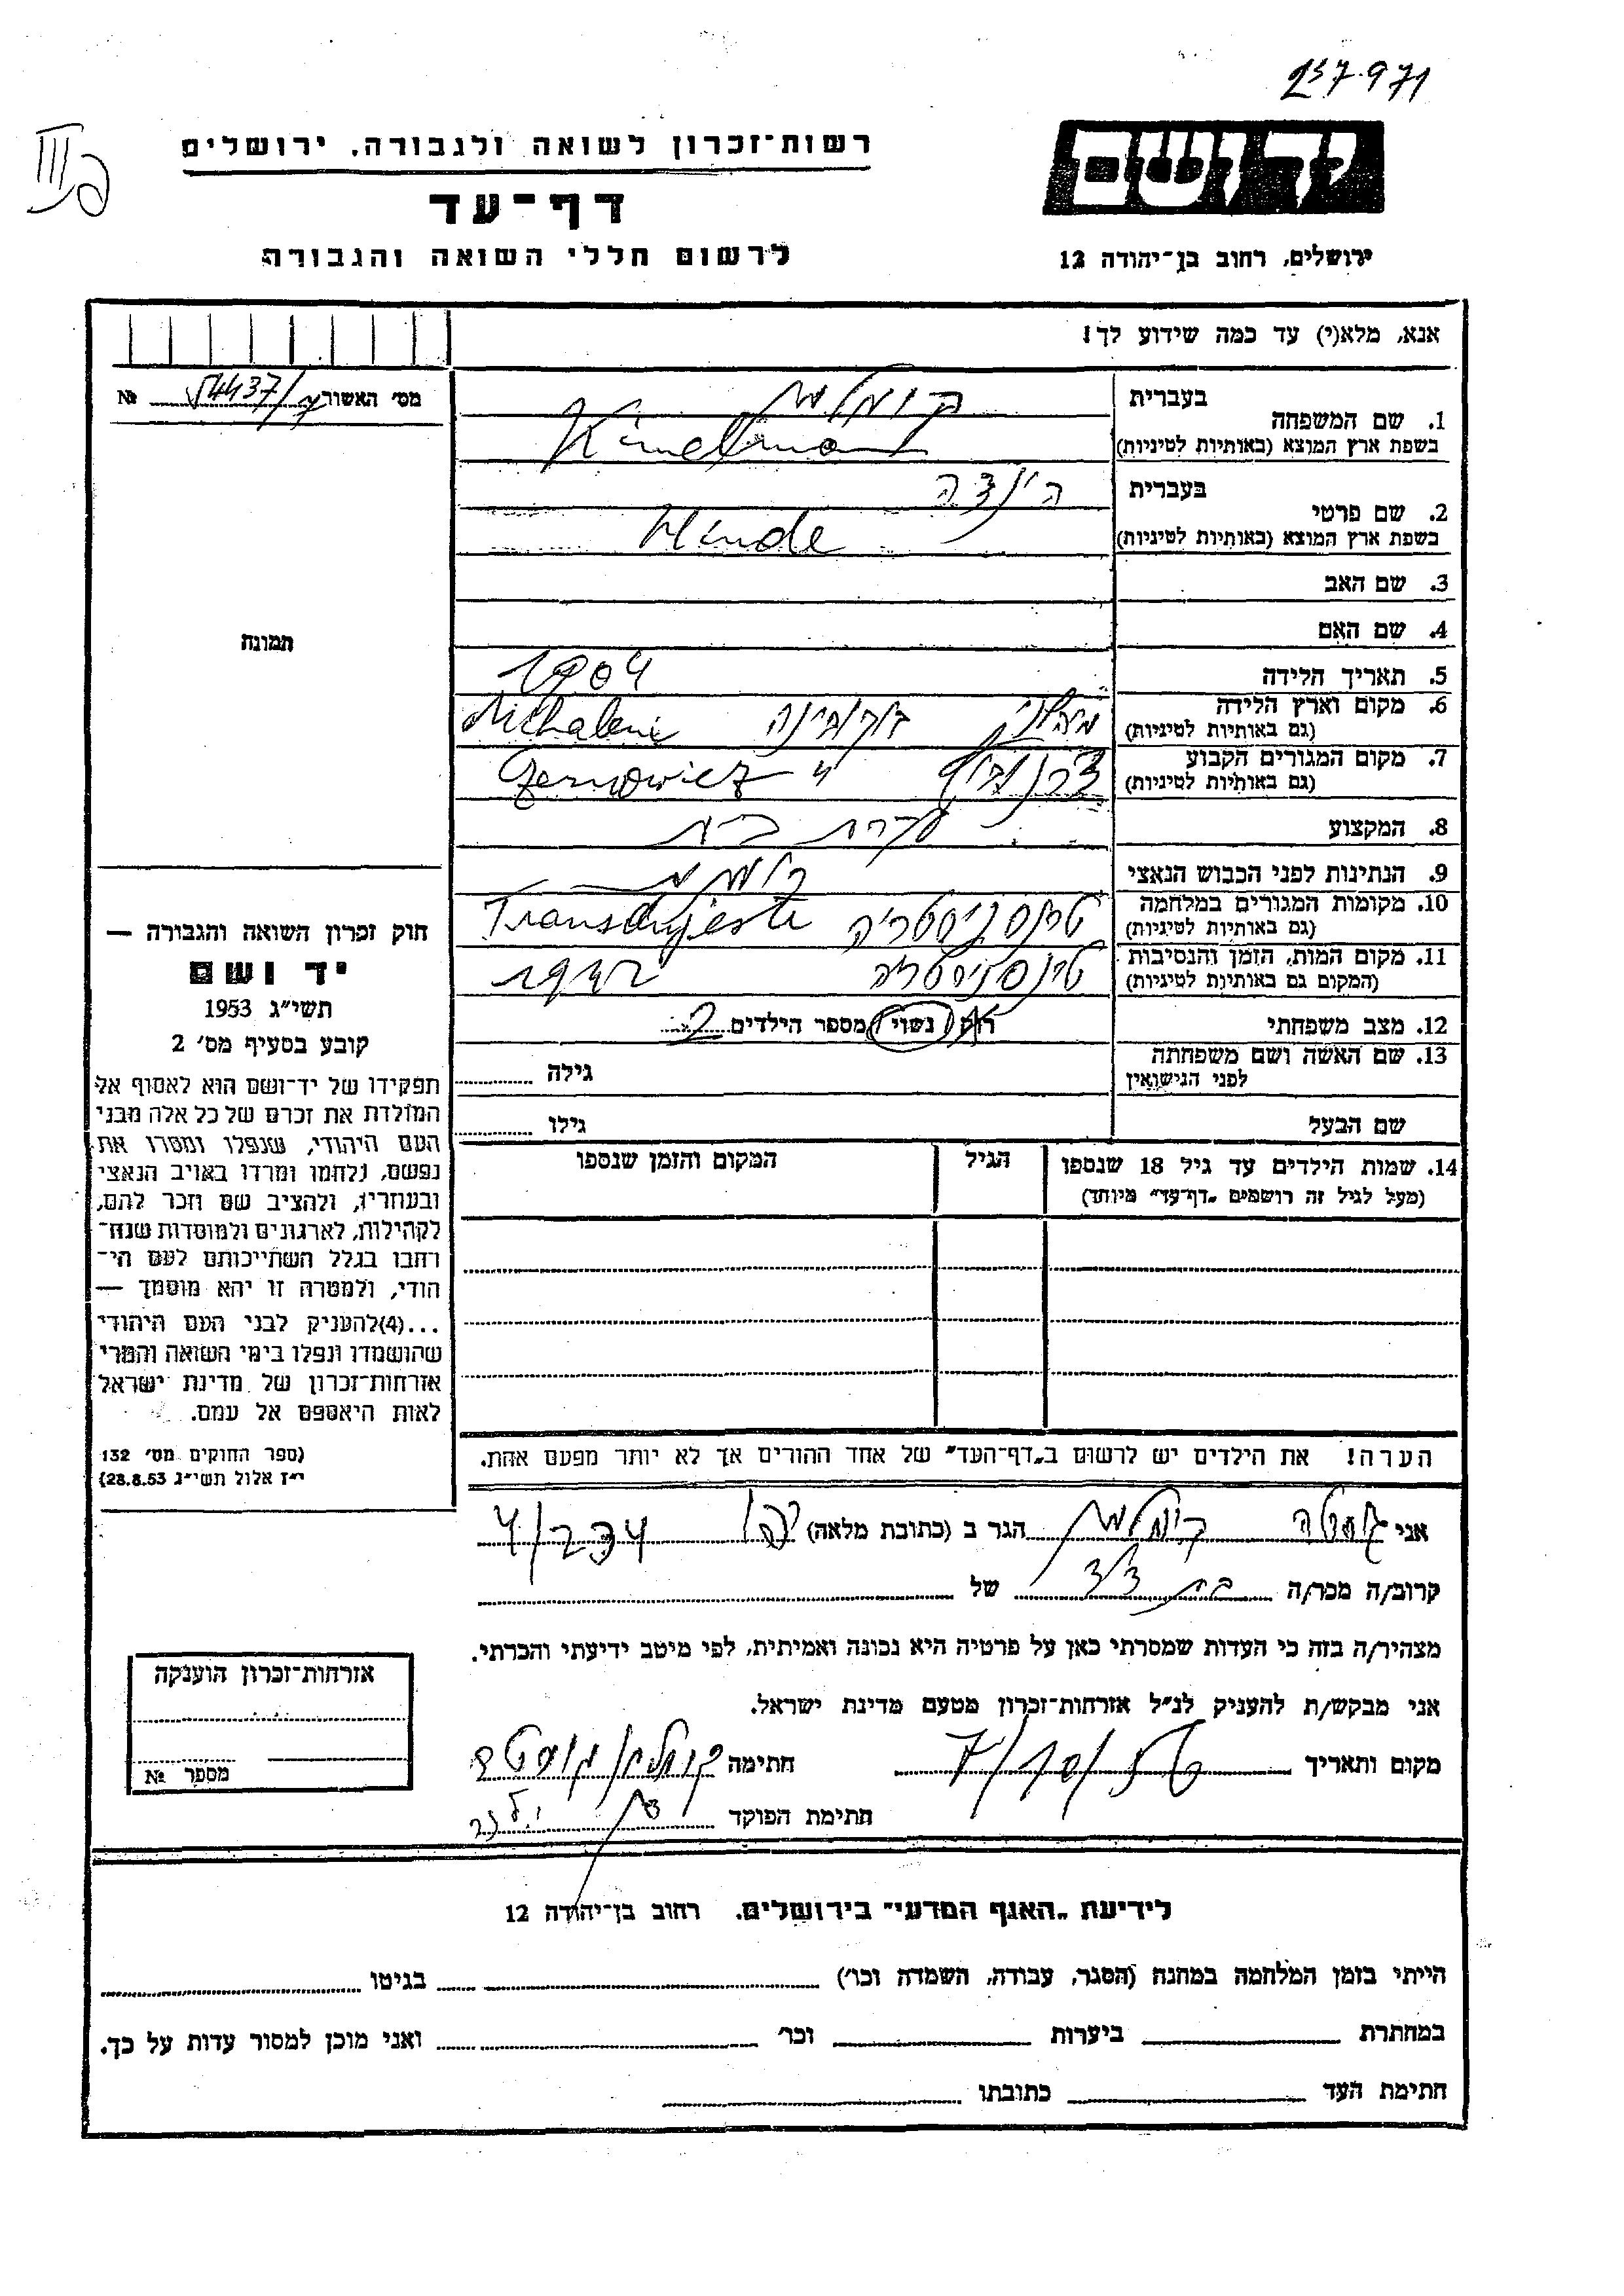 237971
רשות־זכרון לשואה ולגבורה, ירושלים
דף־עד
לרשום חללי השואה והגבורה
יד ושם
ירושלים, רחוב בן־יהודה 12
אנא, מלא(י) עד כמה שידוע לך!
מס׳ האשור 54437/ №
1. שם המשפחה
בעברית
בשפת ארץ המוצא (באותיות לטיניות) Kimelman
2. שם פרטי
בעברית הינדה
בשפת ארץ המוצא (באותיות לטיניות) Hinde
3. שם האב
4. שם האם
5. תאריך הלידה 1904
6. מקום וארץ הלידה
(גם באותיות לטיניות) בוקובינה
7. מקום המגורים הקבוע
(גם באותיות לטיניות) צרנוביץ
8. המקצוע עקרת בית
9. הנתינות לפני הכבוש הנאצי
10. מקומות המגורים במלחמה
(גם באותיות לטיניות) טרנסניסטריה
11. מקום המות, הזמן והנסיבות
(המקום גם באותיות לטיניות) טרנסניסטריה 1942
12. מצב משפחתי רוק נשוי מספר הילדים 2
13. שם האשה ושם משפחתה
לפני הנישואין גילה
שם הבעל גילו
14. שמות הילדים עד גיל 18 שנספו הגיל המקום והזמן שנספו
(מעל לגיל זה רושמים „דף־עד״ מיוחד)
הערה! את הילדים יש לרשום ב„דף־העד״ של אחד ההורים אך לא יותר מפעם אחת.
תמונה
חוק זכרון השואה והגבורה —
יד ושם
תשי״ג 1953
קובע בסעיף מס׳ 2
תפקידו של יד־ושם הוא לאסוף אל
המולדת את זכרם של כל אלה מבני
העם היהודי, שנפלו ומסרו את
נפשם, נלחמו ומרדו באויב הנאצי
ובעוזריו, ולהציב שם וזכר להם,
לקהילות, לארגונים ולמוסדות שנח־
רבו בגלל השתייכותם לעם הי־
הודי, ולמטרה זו יהא מוסמך —
...(4)להעניק לבני העם היהודי
שהושמדו ונפלו בימי השואה והמרי
אזרחות־זכרון של מדינת ישראל
לאות היאספם אל עמם.
(ספר החוקים מס׳ 132
י״ז אלול תשי״ג 28.8.53)
אני הגר ב (כתובת מלאה) 4/234
קרוב/ה מכר/ה בת דוד של
מצהיר/ה בזה כי העדות שמסרתי כאן על פרטיה היא נכונה ואמיתית, לפי מיטב ידיעתי והכרתי.
אני מבקש/ת להעניק לנ״ל אזרחות־זכרון מטעם מדינת ישראל.
מקום ותאריך חתימה
חתימת הפוקד
אזרחות־זכרון הוענקה
מספר №
לידיעת „האגף המדעי״ בירושלים, רחוב בן־יהודה 12
הייתי בזמן המלחמה במחנה (הסגר, עבודה, השמדה וכו׳) בגיטו
במחתרת ביערות וכו׳ ואני מוכן למסור עדות על כך.
חתימת העד כתובתו